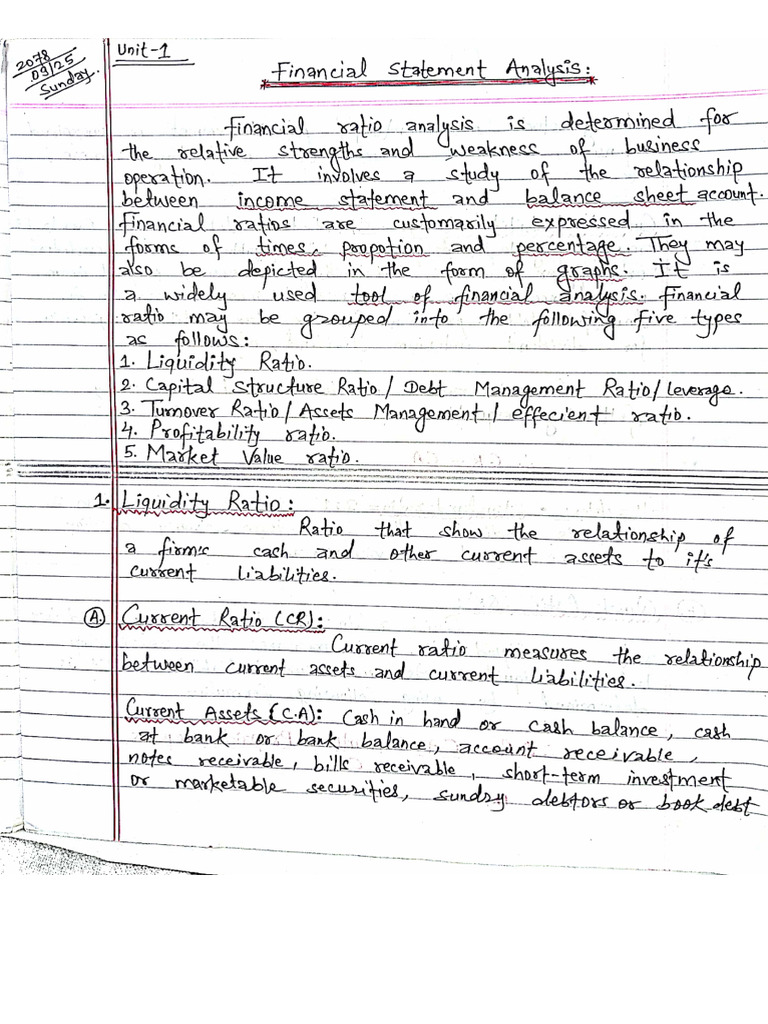 2078
09/25
Sunday.
Unit-1
Financial Statement Analysis:
Financial ratio analysis is determined for
the relative strengths and weakness of business
operation. It involves a study of the relationship
between income statement and balance sheet account.
Financial ratios are customarily expressed in the
forms of times, propotion and percentage. They may
also be depicted in the form of graphs. It is
a widely used tool of financial analysis. Financial
ratio may be grouped into the following five types
as follows:
1. Liquidity Ratio.
2. Capital Structure Ratio / Debt Management Ratio/leverage.
3. Turnover Ratio / Assets Management / effecient ratio.
4. Profitability ratio.
5. Market Value ratio.
1. Liquidity Ratio:
Ratio that show the relationship of
a firm's cash and other current assets to it's
current liabilities.
(A) Current Ratio (CR):
Current ratio measures the relationship
between current assets and current liabilities.
Current Assets (C.A): Cash in hand or cash balance, cash
at bank or bank balance, account receivable,
notes receivable, bills receivable, short-term investment
or marketable securities, sundry debtors or book debt